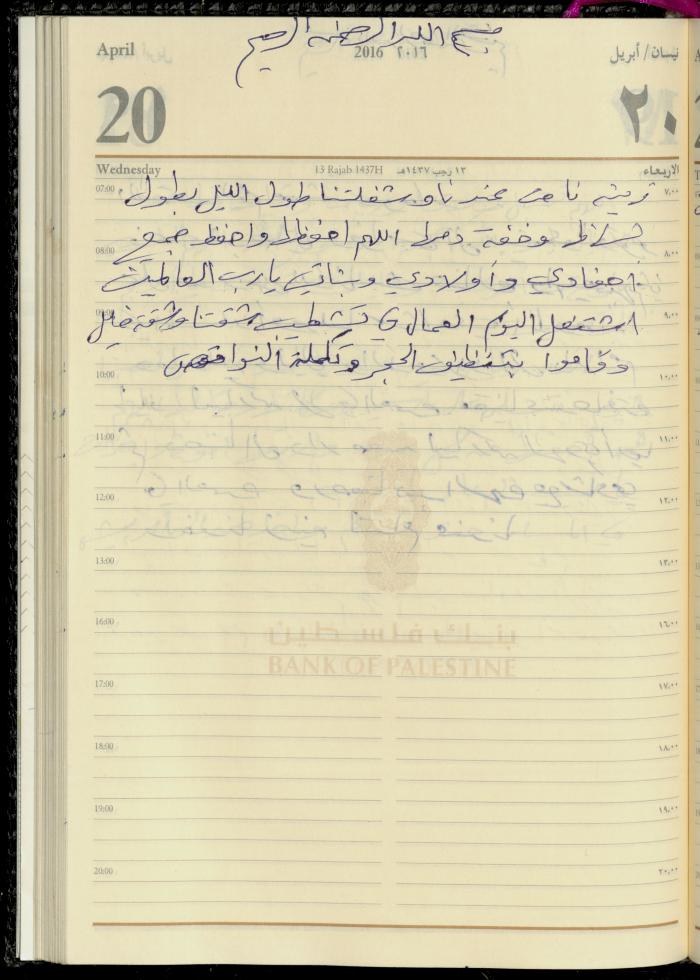 بسم الله الرحمن الرحيم
April 2016 ٢٠١٦ نيسان/ أبريل
20 ٢٠
Wednesday 13 Rajab 1437H ١٣ رجب ١٤٣٧هـ الاربعاء
07:00 ٧،٠٠
نامت عندنا و شغلتنا طول الليل بطول
08:00 ٨،٠٠
وخفة دمها اللهم احفظها واحفظ جميع
أحفادي وأولادي وبناتي يارب العالمين
٩،٠٠
اشتغل اليوم العمال في تشطيب شقتنا وشقة
وقاموا بتنظيف الحجر وتكملة النواقص
10:00 ١٠،٠٠
11:00 ١١،٠٠
12:00 ١٢،٠٠
13:00 ١٣،٠٠
بنك فلسطين
16:00 ١٦،٠٠
BANK OF PALESTINE
17:00 ١٧،٠٠
18:00 ١٨،٠٠
19:00 ١٩،٠٠
20:00 ٢٠،٠٠